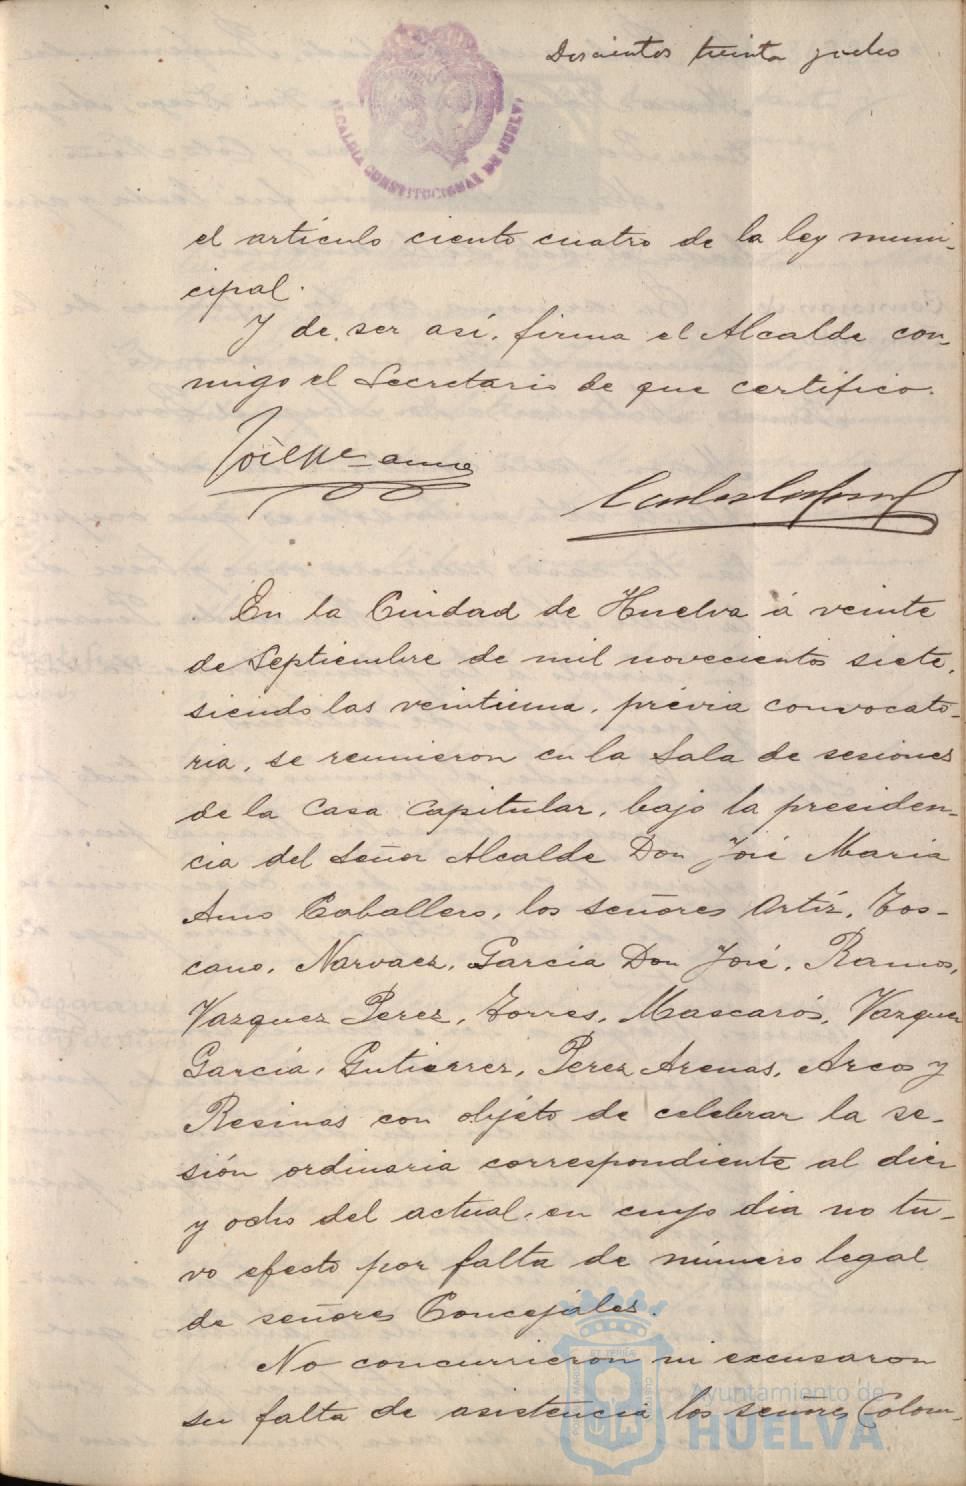 Doscientos treinta y ocho
ALCALDIA CONSTITUCIONAL DE HUELVA
el artículo ciento cuatro de la ley muni-
cipal.
Y de ser así, firma el Alcalde con-
migo el Secretario de que certifico.
En la Ciudad de Huelva á veinte
de Septiembre de mil novecientos siete,
siendo las veintiuna, prévia convocato-
ria, se reunieron en la Sala de sesiones
de la Casa Capitular, bajo la presiden-
cia del Señor Alcalde Don José Maria
Amo Caballero, los señores Ortíz, Tos-
cano, Narvaez, Garcia Don José, Ramos,
Vazquez Perez, Torres, Mascarós, Vazquez
García, Gutierrez, Perez Arenas, Arcos y
Resinas con objéto de celebrar la se-
sión ordinaria correspondiente al diez
y ocho del actual, en cuyo dia no tu-
vo efecto por falta de número legal
de señores Concejales.
No concurrieron ni excusaron
su falta de asistencia los señores Colom-
Ayuntamiento de
HUELVA